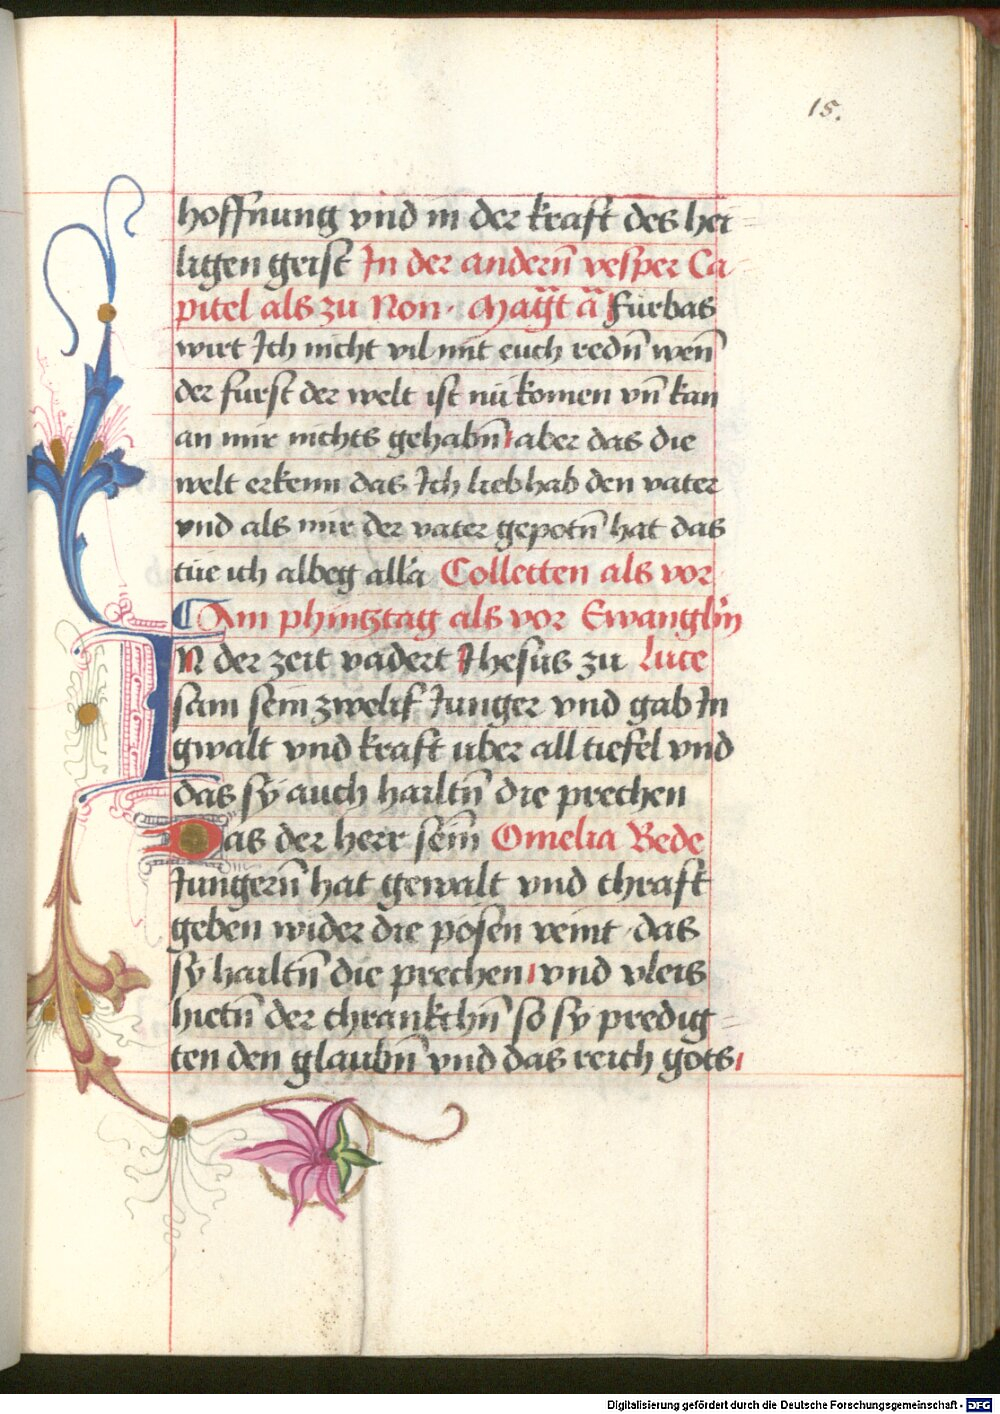 15.
hoffnung vnd in der kraft des hei=
ligen geist In der andern̄ vesper Ca
pitel als zu Non. Mag̈t ä Fürbas
wirt Ich nicht vil mit euch redn̄ wen̄
der furst der welt ist nū komen vn̄ kan
an mir nichts gehabn̄ aber das die
welt erkenn das Ich lieb hab den vater
vnd als mir der vater gepotn̄ hat das
tüe ich albeg all'a Collecten als vor
Am phintztag als vor Ewangl'm
In der zeit vadert Jhesus zu Luce
sam sein zwelif Junger vnd gab In
gwalt vnd kraft uber all tiefel vnd
das sÿ auch hailtn̄ die prechen
Das der herr sein̄ Omelia Bede
Jungern̄ hat gewalt vnd chraft
geben wider die pösen veint das
sy hailtn̄ die prechen vnd vleis
hietn̄ der chrankchn̄ so sy predig=
ten den glaubn̄ vnd das reich gots
Digitalisierung gefördert durch die Deutsche Forschungsgemeinschaft - DFG